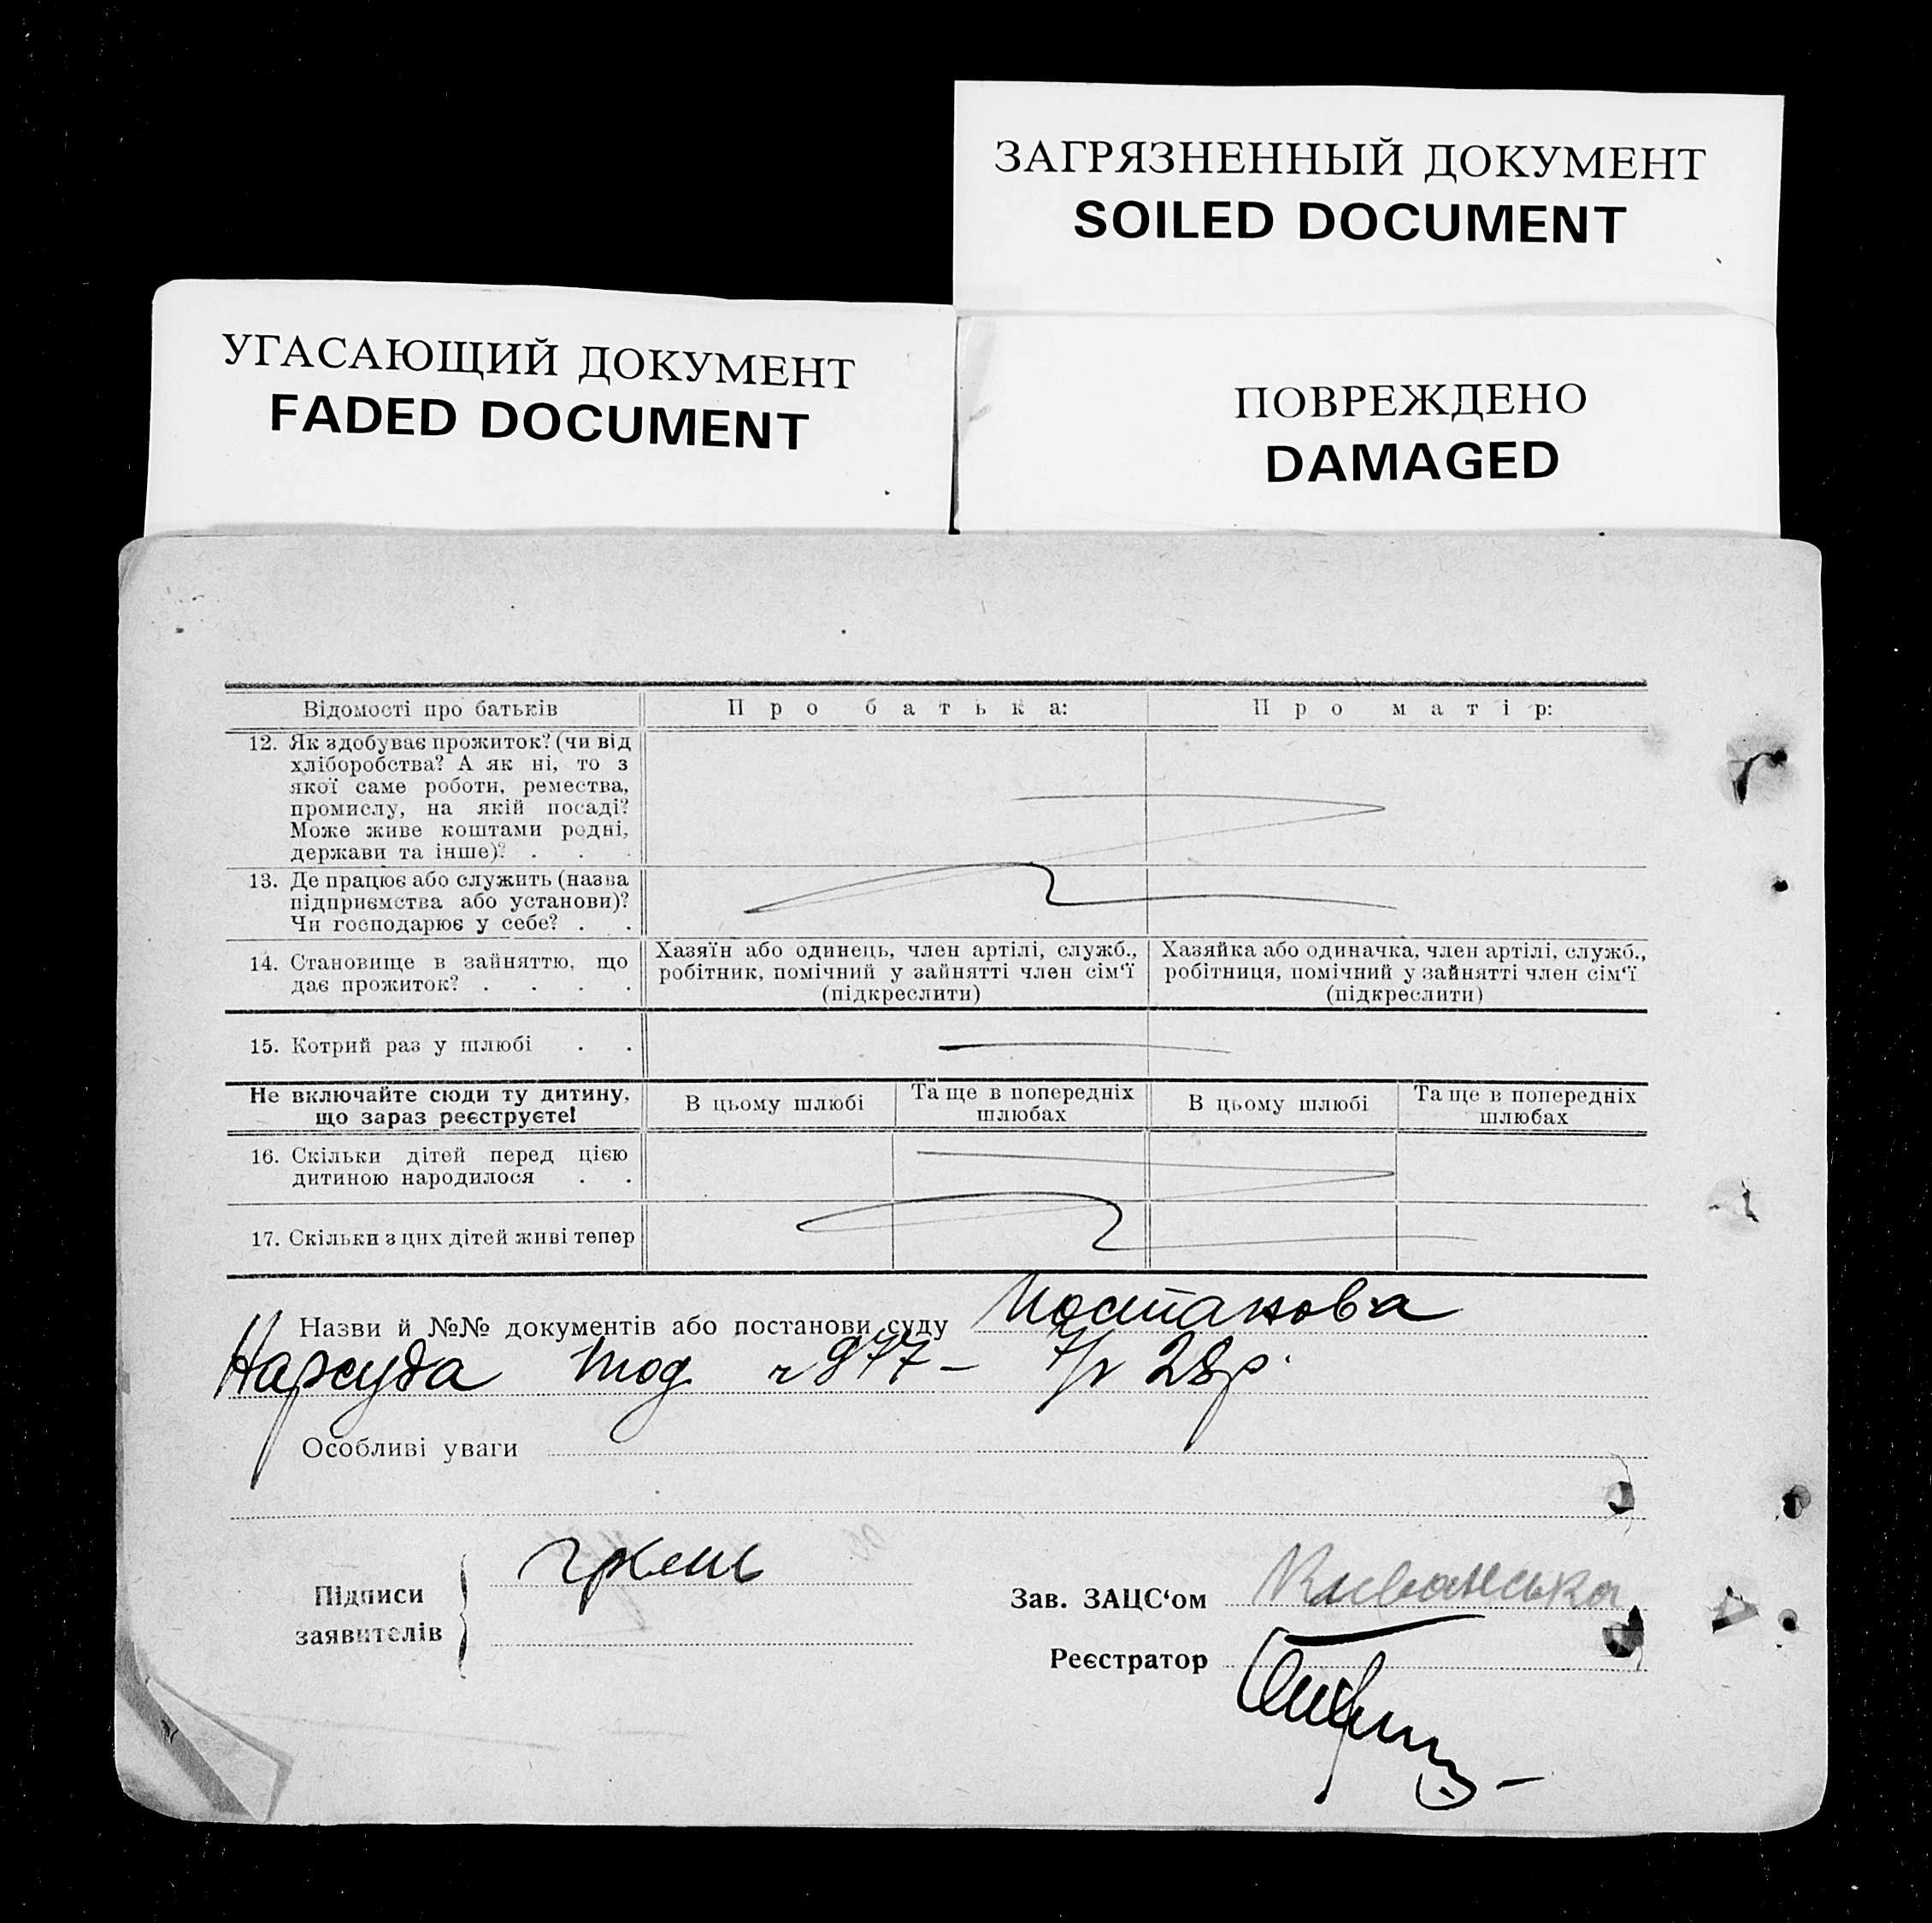 ЗАГРЯЗНЕННЫЙ ДОКУМЕНТ
SOILED DOCUMENT
УГАСАЮЩИЙ ДОКУМЕНТ
FADED DOCUMENT
ПОВРЕЖДЕНО
DAMAGED
Відомості про батьків
Про батька:
Про матір:
12. Як здобуває прожиток? (чи від
хліборобства? А як ні, то з
якої саме роботи, ремества,
промислу, на якій посаді?
Може живе коштами родні,
держави та інше)? . . .
13. Де працює або служить (назва
підприємства або установи)?
Чи господарює у себе? . .
14. Становище в зайняттю, що
дає прожиток? . . . .
Хазяїн або одинець, член артілі, служб.,
робітник, помічний у зайнятті член сім‘ї
(підкреслити)
Хазяйка або одиначка, член артілі, служб.,
робітниця, помічний у зайнятті член сім‘ї
(підкреслити)
15. Котрий раз у шлюбі . .
Не включайте сюди ту дитину,
що зараз реєструєте!
В цьому шлюбі
Та ще в попередніх
шлюбах
В цьому шлюбі
Та ще в попередніх
шлюбах
16. Скільки дітей перед цією
дитиною народилося . .
17. Скільки з цих дітей живі тепер
Назви й №№ документів або постанови суду Постанова
Нарсуда 28р.
Особливі уваги
Підписи
заявителів
Зав. ЗАЦС‘ом
Реєстратор